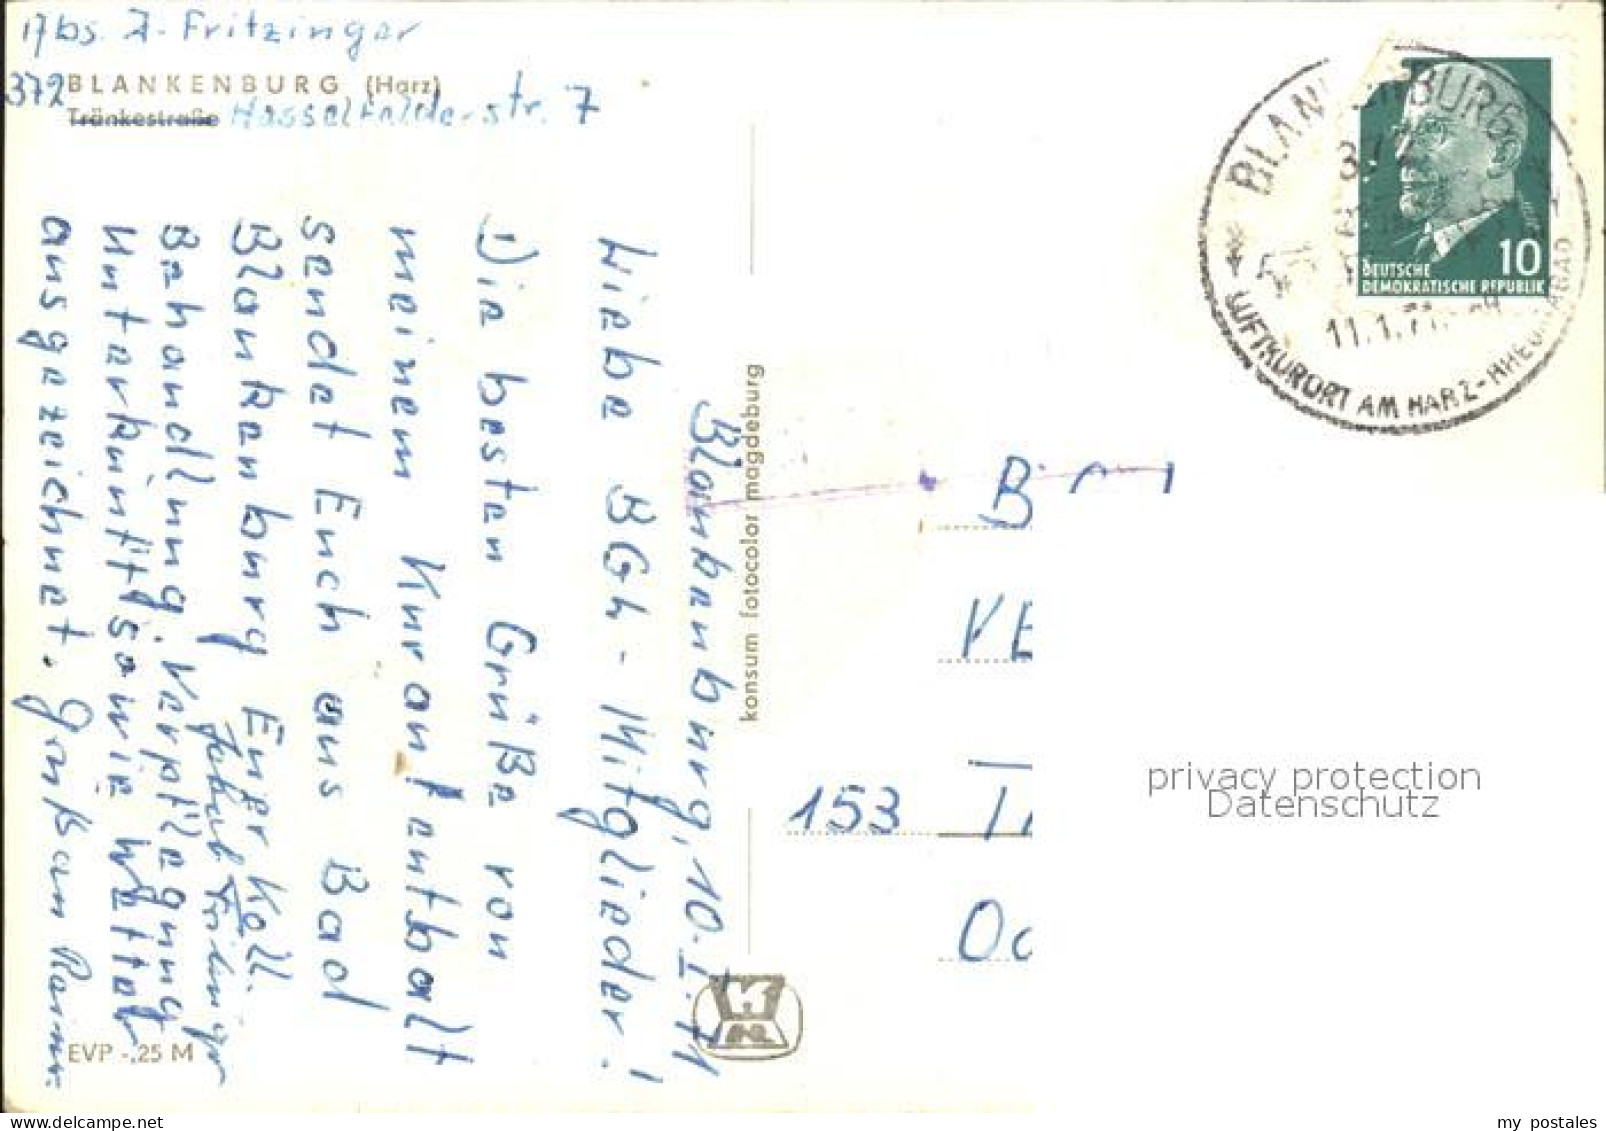 Abs. J. Fritzinger
372 BLANKENBURG (Harz)
Tränkestraße Hasselfelder-str. 7
Blankenburg, 10.I.71
Liebe BGh-Mitglieder!
Die besten Grüße von
meinem Kuraufenthalt
sendet Euch aus Bad
Blankenburg Euer Koll.
Jakob Fritzinger
Behandlung, Verpflegung
Unterkünft sowie Wetter
ausgezeichnet.
EVP -,25 M
konsum fotocolor magdeburg
BLANKENBURG
372
11.1.71
LUFTKURORT AM HARZ-RHEUMABAD
10
DEUTSCHE
DEMOKRATISCHE REPUBLIK
VE
153
privacy protection
Datenschutz
my postales